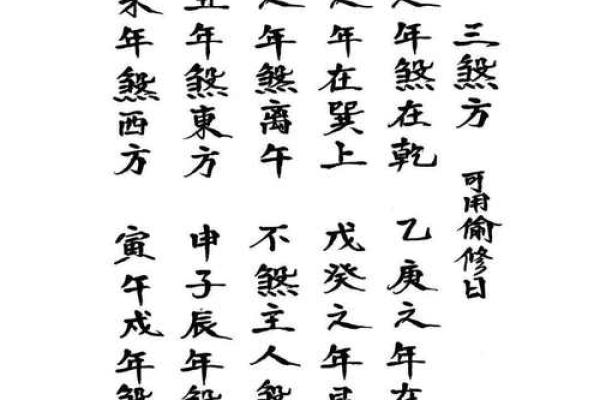 三煞方 可用偷修日
年煞在乾 乙庚之年在
年在巽上 戊癸之年
年煞离午 不煞主人煞
丑年煞東方 申子辰年煞
未年煞西方 寅午戍年煞